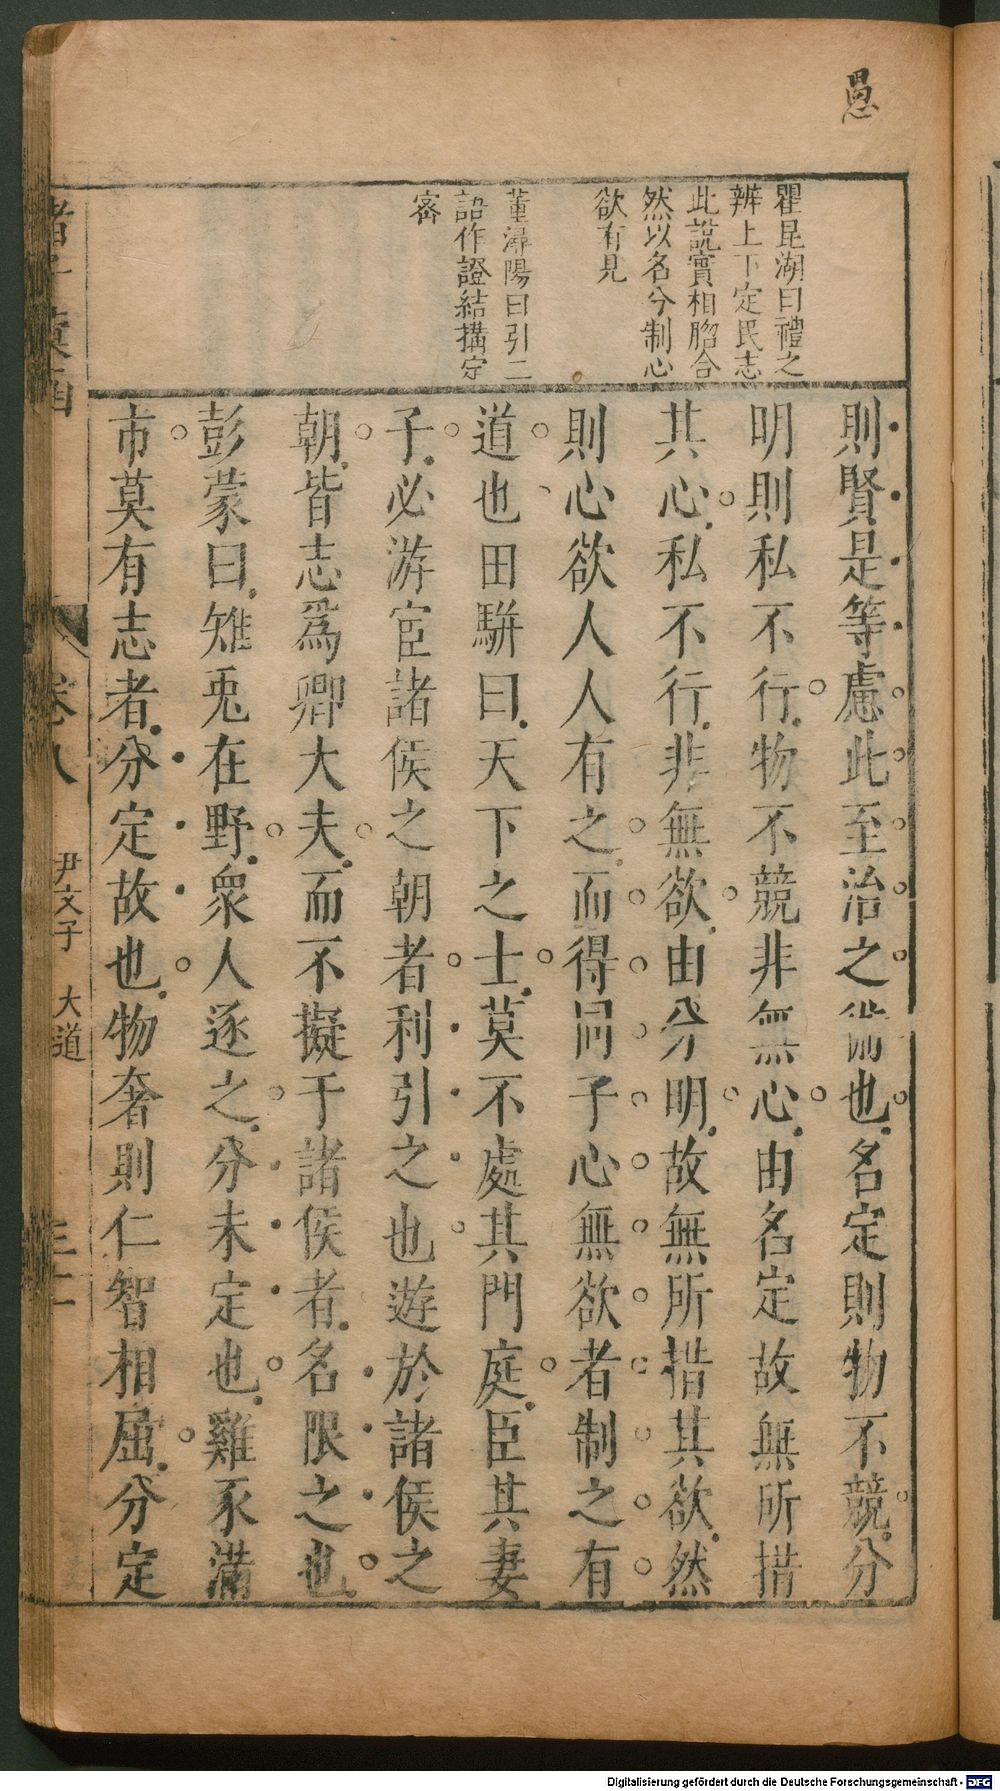 愚
瞿昆湖曰禮之
辨上下定民志
此說實相脗合
然以名分制心
欲有見
董潯陽曰引二
語作證結搆完
密
則賢是等慮此至治之術也名定則物不競分
明則私不行物不競非無心由名定故無所措
其心私不行非無欲由分明故無所措其欲然
則心欲人人有之而得同于心無欲者制之有
道也田駢曰天下之士莫不處其門庭臣其妻
子必游宦諸侯之朝者利引之也遊於諸侯之
朝皆志爲卿大夫而不擬于諸侯者名限之也
彭蒙曰雉兎在野衆人逐之分未定也雞豕滿
市莫有志者分定故也物奢則仁智相屈分定
諸子 函
卷八
尹文子 大道
Digitalisierung gefördert durch die Deutsche Forschungsgemeinschaft - DFG